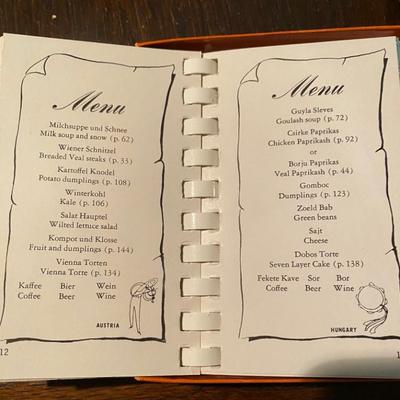 Menu
Milchsuppe und Schnee
Milk soup and snow (p. 62)
Wiener Schnitzel
Breaded Veal steaks (p. 33)
Kartoffel Knodel
Potato dumplings (p. 108)
Winterkohl
Kale (p. 106)
Salat Hauptel
Wilted lettuce salad
Kompot und Klosse
Fruit and dumplings (p. 144)
Vienna Torten
Vienna Torte (p. 134)
Kaffee Bier Wein
Coffee Beer Wine
AUSTRIA
12
Menu
Guyla Sleves
Goulash soup (p. 72)
Csirke Paprikas
Chicken Paprikash (p. 92)
or
Borju Paprikas
Veal Paprikash (p. 44)
Gomboc
Dumplings (p. 123)
Zoeld Bab
Green beans
Sajt
Cheese
Dobos Torte
Seven Layer Cake (p. 138)
Fekete Kave Sor Bor
Coffee Beer Wine
HUNGARY